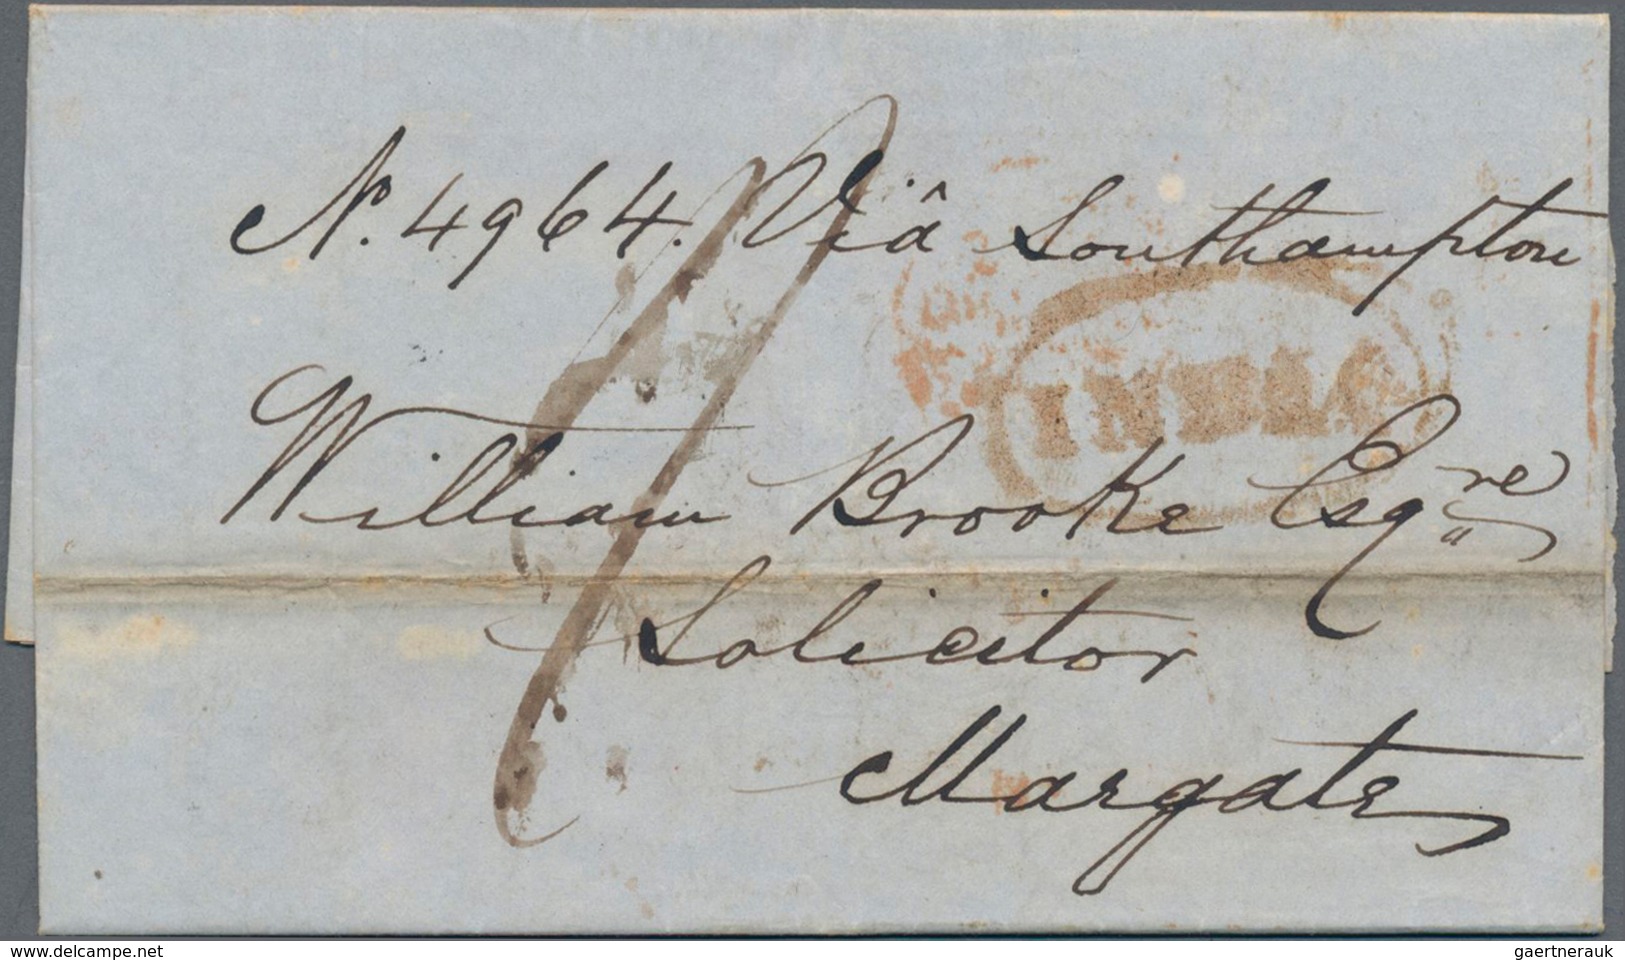 No. 4964. Viâ Southampton
INDIA
William Brooke Esqre
Solicitor
Margate
www.delcampe.net
gaertnerauk